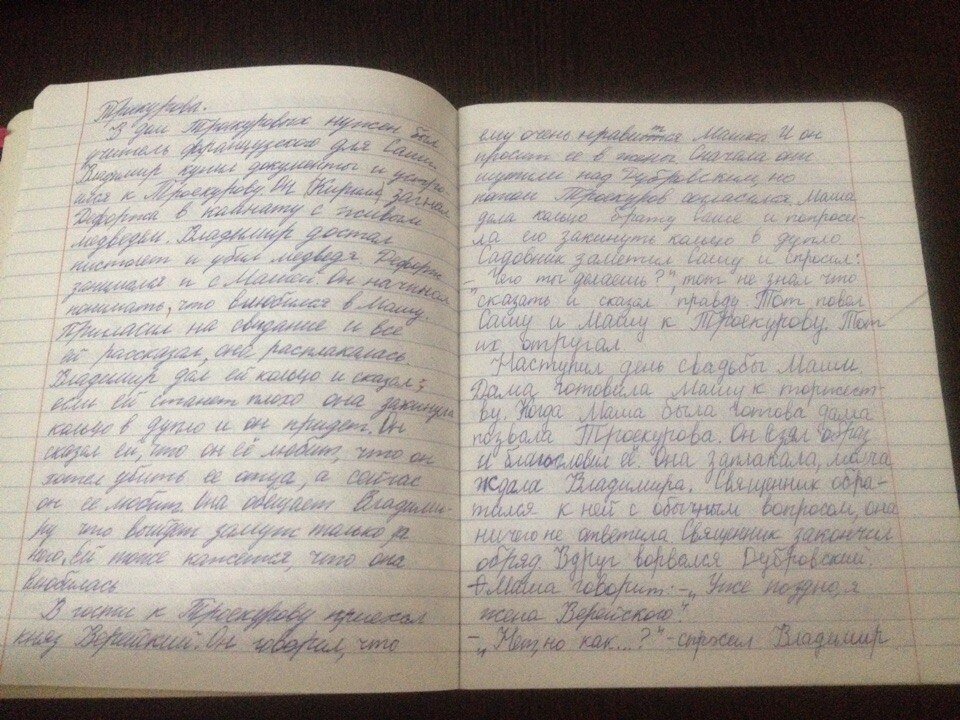 Трикурова.
В дом Трикуровых нужен был
учитель французского для Саши.
Владимир купил документы и устро-
ился к Троекурову. Он (Кирила) загнал
Дефоржа в комнату с живым
медведем. Владимир достал
пистолет и убил медведя. Дефорж
занимался и с Машей. Он начинал
понимать, что влюбился в Машу.
Пригласил на свидание и всё
ей рассказал, она расплакалась.
Владимир дал ей кольцо и сказал:
если ей станет плохо она закинула
кольцо в дупло и он придет. Он
сказал ей, что он её любит, что он
хотел убить её отца, а сейчас
он её любит. Она обещает Владими-
ру что выйдет замуж только за
него, ей тоже кажется, что она
влюбилась
В гости к Троекурову приехал
князь Верейский. Он говорил, что
ему очень нравиттся Машка. И он
просит её в жены. Сначала они
шутили над Дубровским, но
потом Троекуров согласился. Маша
дала кольцо брату Саше и попроси-
ла его закинуть кольцо в дупло
Садовник заметил Сашу и спросил:
- "Что ты делаешь?", тот не знал что
сказать и сказал правду. Тот повел
Сашу и Машу к Троекурову. Тот
их отругал
Наступил день свадьбы Маши.
Дама готовила Машу к торжест-
ву. Когда Маша была готова дама
позвала Троекурова. Он взял образ
и благословил её. Она заплакала,
ждала Владимира. Священник обра-
тился к ней с обычным вопросом, она
ничего не ответила Священник закончил
обряд. Вдруг ворвался Дубровский.
Маша говорит: - "Уже поздно, я
жена Верейского".
- "Нет, но как...?" - спросил Владимир